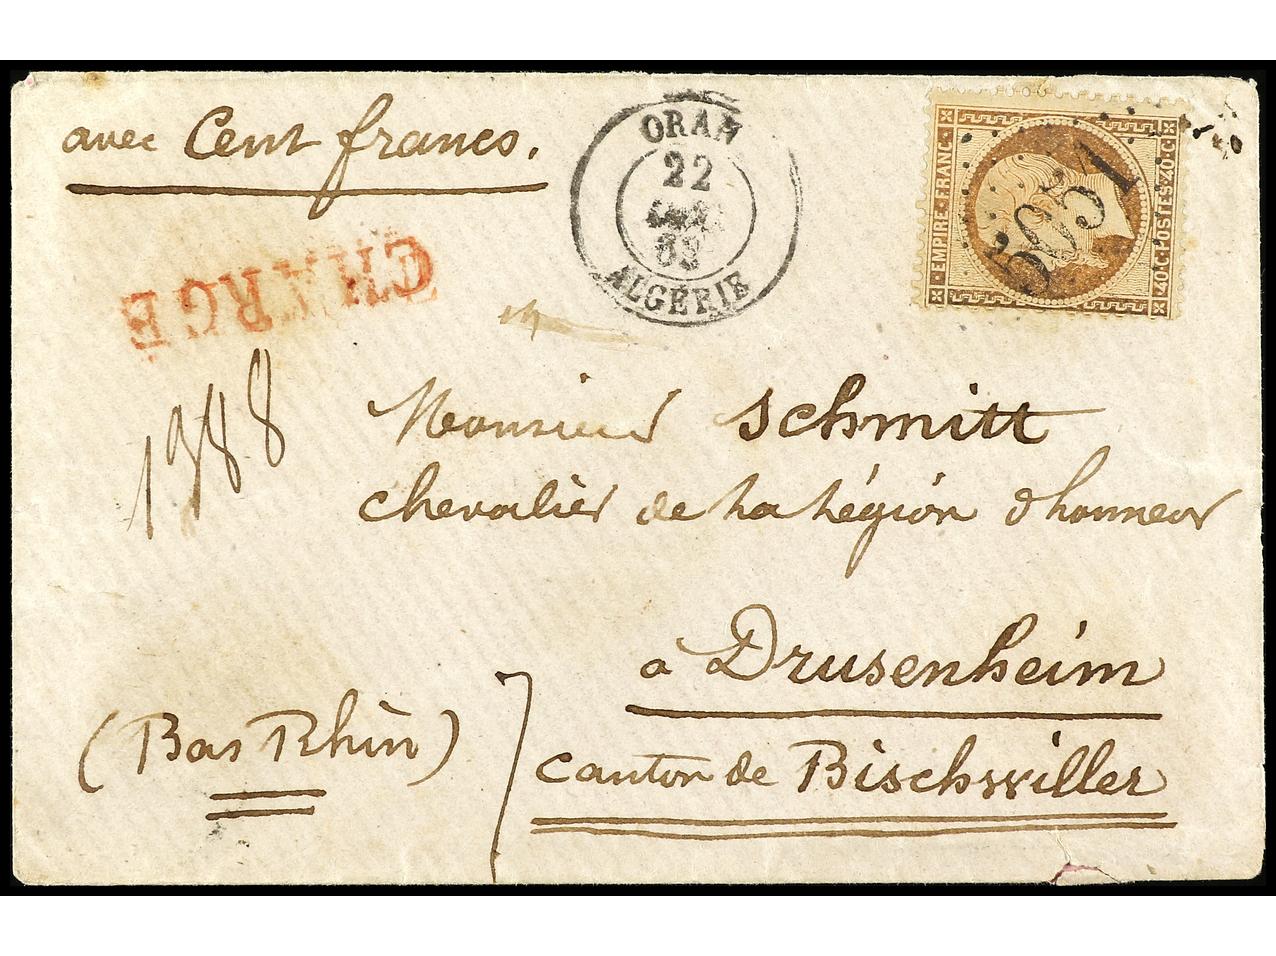 avec Cent francs.
ORAN
22
68
ALGÉRIE
EMPIRE·FRANC.
40·C·POSTES·40·C·
5051
CHARGÉ
1988
Monsieur Schmitt
chevalier de la légion d honneur
à Drusenheim
(Bas Rhin)
canton de Bischwiller